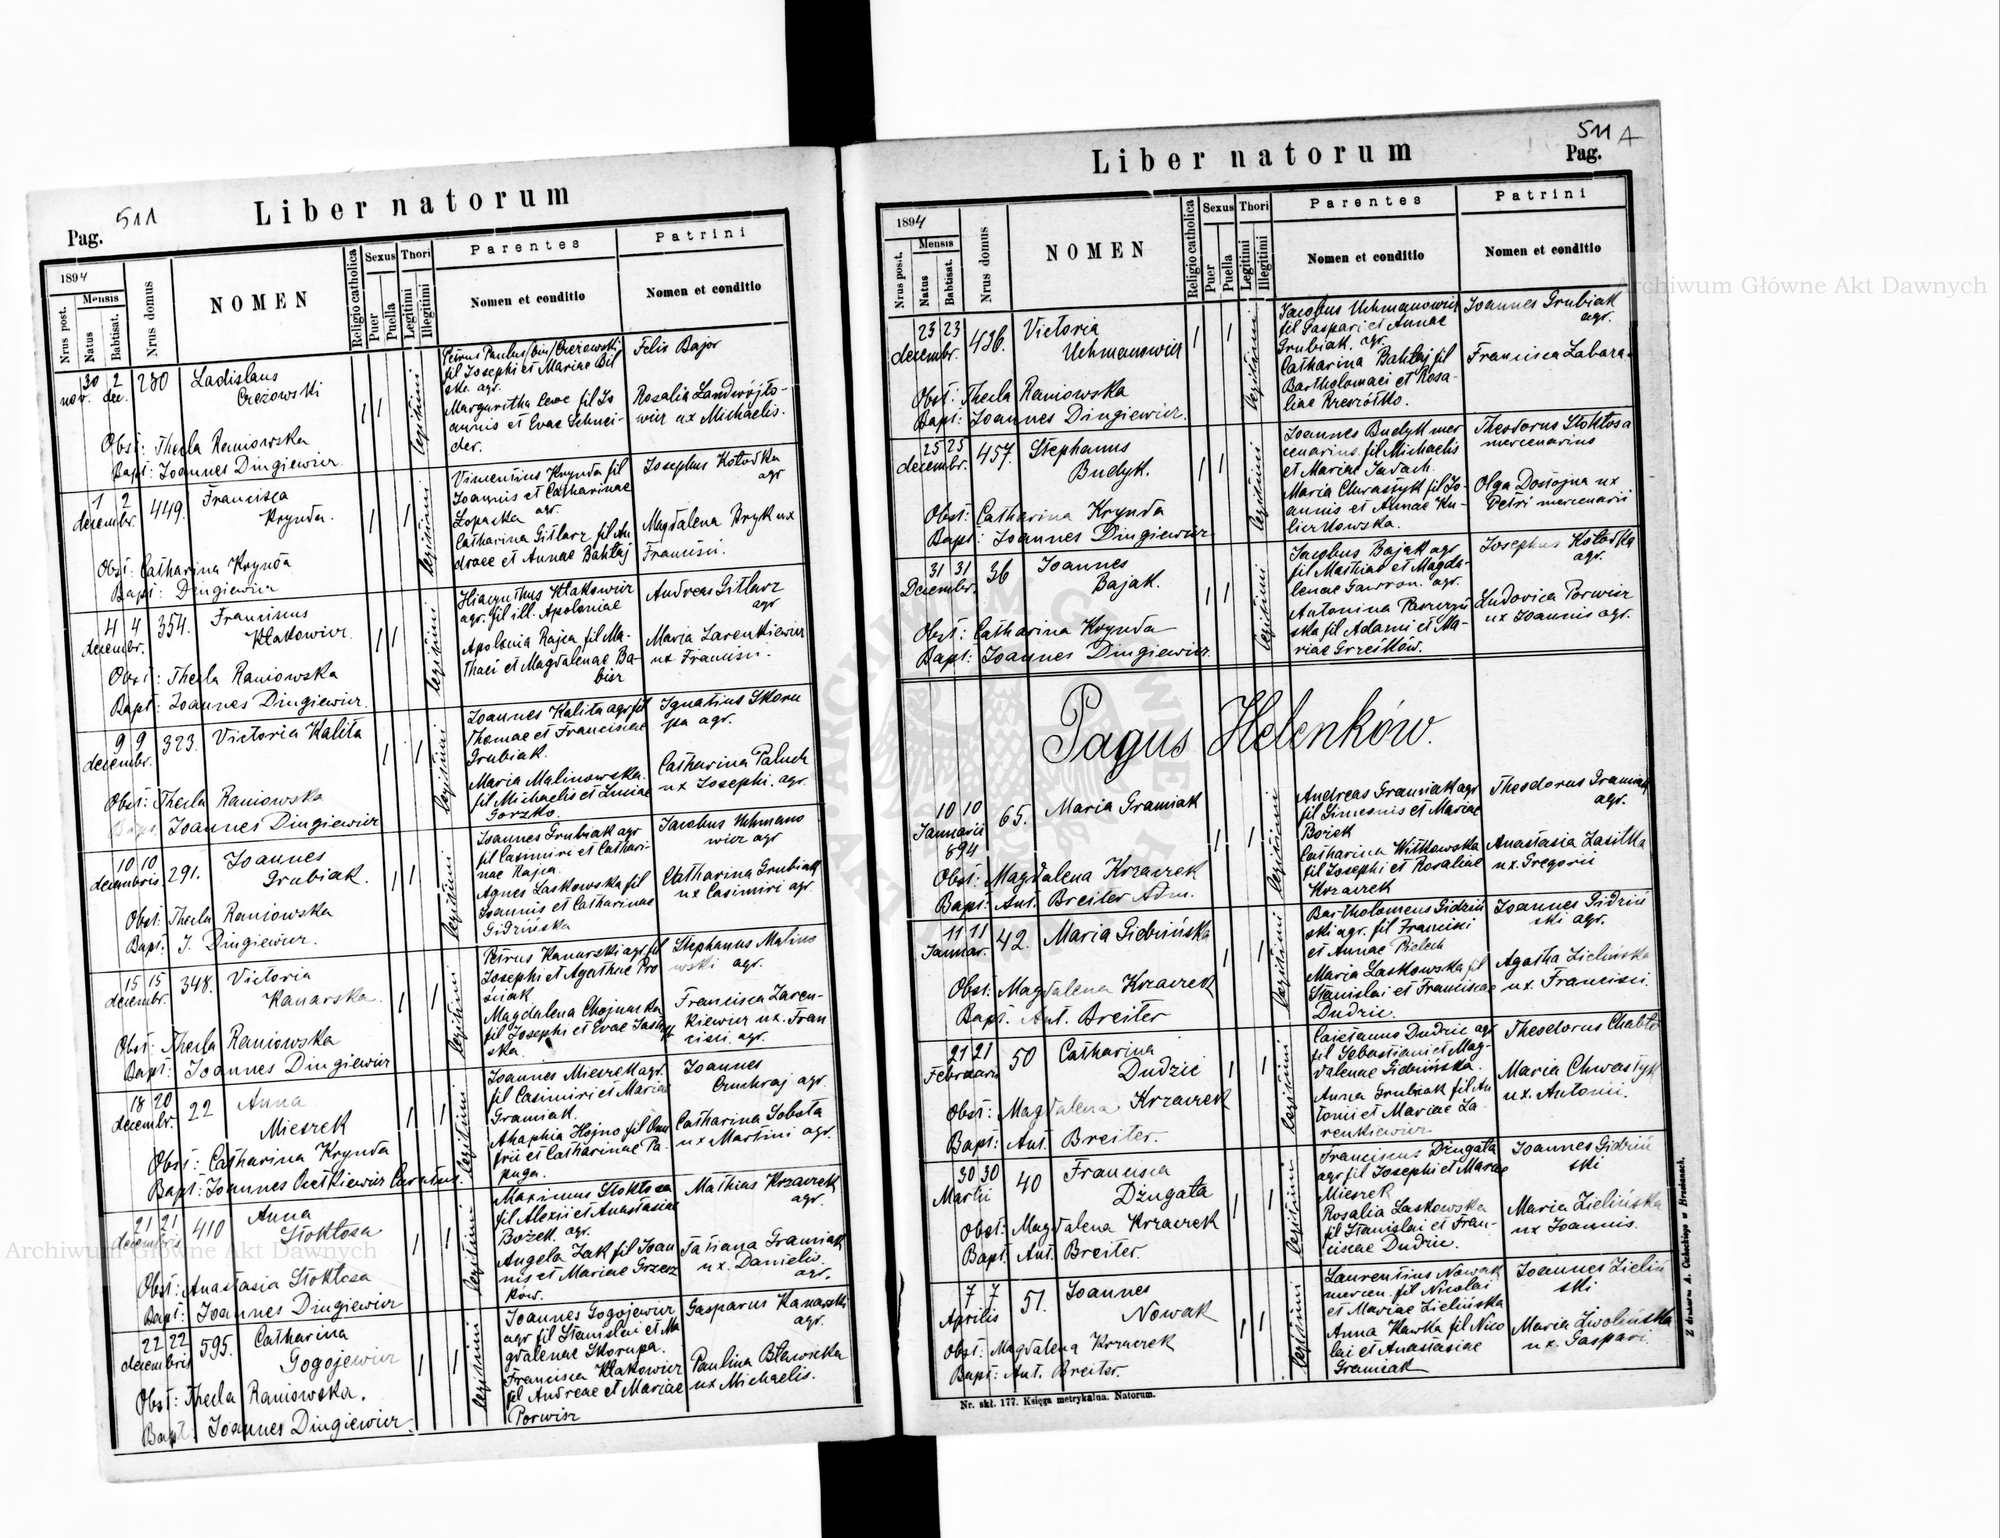 Pag. 511
Liber natorum
1894
Mensis
Nrus post.
Natus
Babtisat.
Nrus domus
NOMEN
Religio catholica
Sexus
Puer
Puella
Thori
Legitimi
Illegitimi
Parentes
Nomen et conditio
Patrini
Nomen et conditio
30 2
nov. dec.
280
Ladislaus
Czeżowski
1 1
legitimi
Petrus Paulus /bin/ Czeżowski
fil Josephi et Mariae Bil
ske agr.
Margaritha Lewe fil Jo
annis et Evae Schnei-
der.
Felix Bajor
Rosalia Landwójto-
wicz ux Michaelis.
Obst: Thecla Raniowska
Bapt: Joannes Dzugiewicz
1 2
decembr.
449.
Francisca
Krynda.
1 1
legitimi
Vincentius Krynda fil
Joannis et Catharinae
Łopaska agr.
Catharina Gitlarz fil An
dreae et Annae Bahłaj
Josephus Kołodka
agr
Magdalena Bryk ux
Francisci.
Obst: Catharina Krynda
Bapt: Dzugiewicz
4 4
decembr.
354.
Franciscus
Kłakowicz.
1 1
legitimi
Hiacynthus Kłakowicz
agr. fil ill. Apoloniae
Apolonia Rajca fil Ma-
thaei et Magdalenae Ba-
bicz
Andreas Gitlarz
agr
Maria Zarenkiewicz
ux Francisci.
Obst: Thecla Raniowska
Bapt: Joannes Dzugiewicz.
9 9
decembr.
323.
Victoria Kalita
1 1
legitimi
Joannes Kalita agr fil
Thomae et Franciscae
Grubiak.
Maria Malinowska
fil Michaelis et Luciae
Gorzko.
Ignatius Skoru
pa agr.
Catharina Paluch
ux Josephi. agr.
Obst: Thecla Raniowska
Bapt: Joannes Dzugiewicz
10 10
decembris
291.
Joannes
Grubiak.
1 1
legitimi
Joannes Grubiak agr
fil Casimiri et Cathari-
nae Rajca.
Agnes Laskowska fil
Joannis et Catharinae
Gidzińska
Jacobus Uchmano
wicz agr
Catharina Grubiak
ux Casimiri agr
Obst: Thecla Raniowska
Bapt: J. Dzugiewicz.
15 15
decembr.
348.
Victoria
Kanarska.
1 1
legitimi
Petrus Kanarski agr. fil
Josephi et Agathae Pro
śniak
Magdalena Chojnacka
fil Josephi et Evae
ska.
Stephanus Malino
wski agr.
Francisca Zaren-
kiewicz ux. Fran
cisci. agr.
Obst: Thecla Raniowska
Bapt: Joannes Dzugiewicz
18 20
decembr.
22
Anna
Mierzek
1 1
legitimi
Joannes Mierzek agr.
fil Casimiri et Mariae
Graniak.
Ahaphia Hojno fil Dmi
trii et Catharinae Pa-
puga.
Joannes
agr
Catharina Sobota
ux Martini agr.
Obst: Catharina Krynda
Bapt: Joannes Cwetkiewicz
21 21
decembris
410
Anna
Stokłosa
1 1
legitimi
Maximus Stokłosa
fil Alexii et Anastasiae
Bożek. agr.
Angela Żak fil Joan
nis et Mariae Grzesz
ków.
Mathias Krzaczek
agr.
Tatiana Graniak
ux. Danielis
agr.
Obst: Anastasia Stokłosa
Bapt: Joannes Dzugiewicz
22 22
decembris
595.
Catharina
Gogojewicz
1 1
legitimi
Joannes Gogojewicz
agr fil Stanislai et Ma
gdalenae Skorupa.
Francisca Kłakowicz
fil Andreae et Mariae
Porwisz
Gasparus Kanarski
agr.
Paulina Bławicka
ux Michaelis.
Obst: Thecla Raniowska.
Bapt: Joannes Dzugiewicz.
511 A
Pag.
Liber natorum
1894
Mensis
Nrus post.
Natus
Babtisat.
Nrus domus
NOMEN
Religio catholica
Sexus
Puer
Puella
Thori
Legitimi
Illegitimi
Parentes
Nomen et conditio
Patrini
Nomen et conditio
23 23
decembr.
436.
Victoria
Uchmanowicz
1 1
legitimi
Jacobus Uchmanowicz
fil Gaspari et Annae
Grubiak. agr.
Catharina Bahłaj fil
Bartholomaei et Rosa-
liae Krzeszótko.
Joannes Grubiak
agr.
Francisca Labara
Obst: Thecla Raniowska
Bapt: Joannes Dzugiewicz.
25 25
decembr.
457.
Stephanus
Budyk.
1 1
legitimi
Joannes Budyk mer
cenarius. fil Michaelis
et Mariae Sadach.
Maria Chwastyk fil Jo-
annis et Annae Ku-
lczkowska.
Theodorus Stokłosa
mercenarius
Olga Dosiojna ux
Petri mercenarii
Obst: Catharina Krynda
Bapt: Joannes Dzugiewicz
31 31
Decembr.
36
Joannes
Bajak.
1 1
legitimi
Jacobus Bajak agr
fil Mathiae et Magda-
lenae Gawron. agr.
Antonina
ska fil Adami et Ma-
riae Grześków.
Josephus Kołodka
agr.
Ludovica Porwisz
ux Joannis agr.
Obst: Catharina Krynda
Bapt: Joannes Dzugiewicz
Pagus Helenków.
10 10
Januarii
894
65.
Maria Graniak
1 1
legitimi
Andreas Graniak agr
fil Simeonis et Mariae
Bożek
Catharina Witkowska
fil Josephi et Rosaliae
Krzaczek
Theodorus Graniak
agr.
Anastasia Łasitka
ux. Gregorii
Obst: Magdalena Krzaczek
Bapt: Ant. Breiter Adm.
11 11
Januar.
42.
Maria Gidzińska
1 1
legitimi
Bartholomeus Gidziń
ski agr. fil Francisci
et Annae Bielech
Maria Laskowska fil
Stanislai et Franciscae
Dudzic.
Joannes Gidziń
ski agr.
Agatha Zielińska
ux. Francisci.
Obst: Magdalena Krzaczek
Bapt. Ant. Breiter
21 21
Februarii
50
Catharina
Dudzic
1 1
legitimi
Caietanus Dudzic agr
fil Sebastiani et Mag-
dalenae Gidzińska.
Anna Grubiak fil An
tonii et Mariae Za-
renkiewicz
Theodorus Chabło
Maria Chwastyk
ux. Antonii.
Obst: Magdalena Krzaczek
Bapt: Ant. Breiter.
30 30
Martii
40
Francisca
Dżugała
1 1
legitimi
Franciscus Dżugała
agr fil Josephi et Mariae
Mierzek
Rosalia Laskowska
fil Stanislai et Fran-
ciscae Dudzic.
Joannes Gidziń
ski
Maria Zielińska
ux Joannis.
Obst: Magdalena Krzaczek
Bapt. Ant. Breiter.
7 7
Aprilis
51.
Joannes
Nowak
1 1
legitimi
Laurentius Nowak
mercen. fil Nicolai
et Mariae Zielińska
Anna Kawka fil Nico
lai et Anastasiae
Graniak
Joannes Zieliń
ski
Maria Zwolińska
ux. Gaspari.
Obst: Magdalena Krzaczek
Bapt: Ant. Breiter.
Nr. skł. 177. Księga metrykalna. Natorum.
Z drukarni A. Cichockiego w Brzeżanach.
Archiwum Główne Akt Dawnych
Archiwum Główne Akt Dawnych